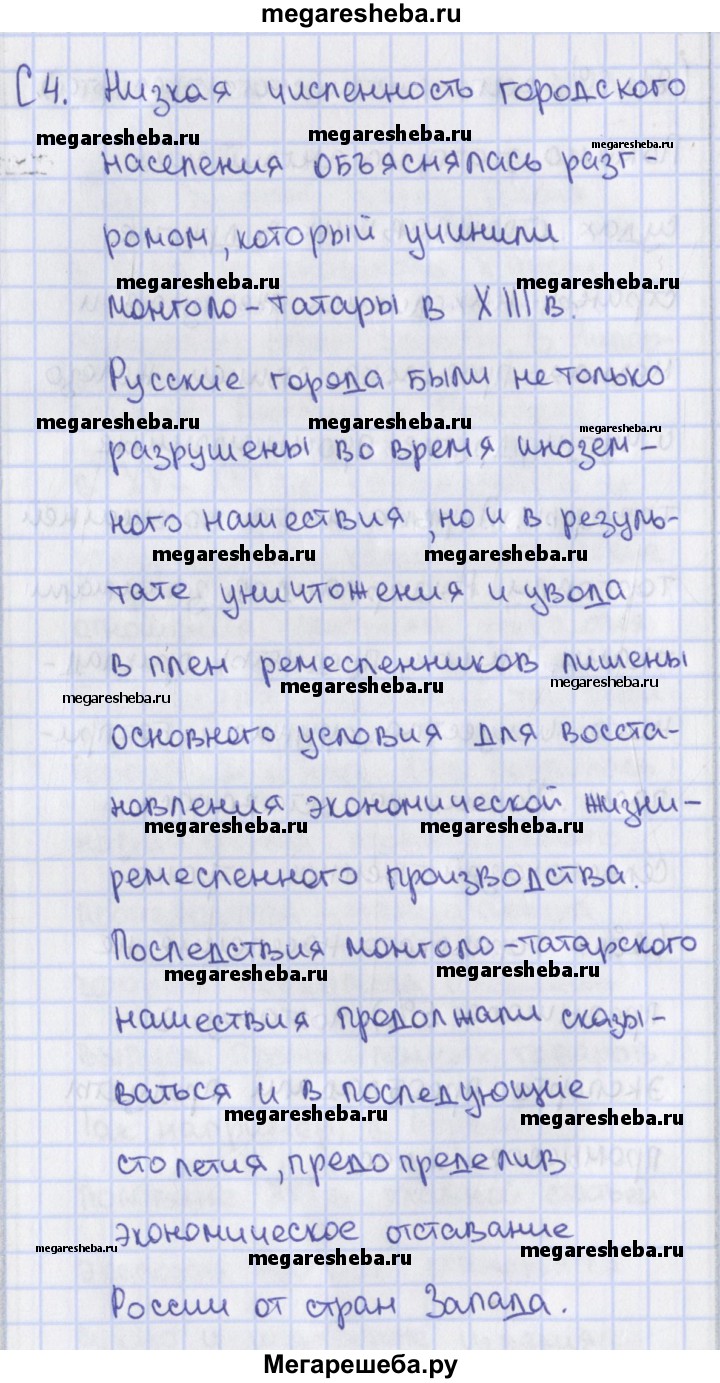 megaresheba.ru
С 4. Низкая численность городского
megaresheba.ru megaresheba.ru megaresheba.ru
населения объяснялась разг-
ромом, который учинили
megaresheba.ru megaresheba.ru
монголо-татары в XIII в.
Русские города были не только
megaresheba.ru megaresheba.ru megaresheba.ru
разрушены во время инозем-
ного нашествия, но и в резуль-
megaresheba.ru megaresheba.ru
тате уничтожения и увода
в плен ремесленников лишены
megaresheba.ru megaresheba.ru megaresheba.ru
основного условия для восста-
новления экономической жизни-
megaresheba.ru megaresheba.ru
ремесленного производства.
Последствия монголо-татарского
megaresheba.ru megaresheba.ru
нашествия продолжали сказы-
ваться и в последующие
megaresheba.ru megaresheba.ru
столетия, предопределив
экономическое отставание
megaresheba.ru megaresheba.ru megaresheba.ru
России от стран Запада.
Мегарешеба.ру